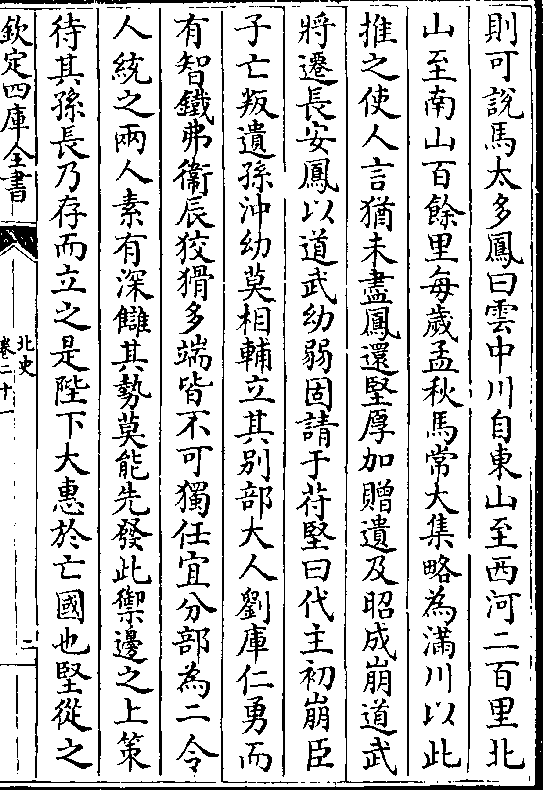 則可說馬太多鳳曰雲中川自東山至西河二百里北
山至南山百餘里每歲孟秋馬常大集略為滿川以此
推之使人言猶未盡鳳還堅厚加贈遺及昭成崩道武
將遷長安鳳以道武幼弱固請于苻堅曰代主初崩臣
子亡叛遺孫沖幼莫相輔立其別部大人劉庫仁勇而
有智鐵弗衞辰狡猾多端皆不可獨任宜分部為二令
人統之兩人素有深讎其勢莫能先發此禦邊之上策
待其孫長乃存而立之是陛下大惠於亡國也堅從之
欽定四庫全書
北史
卷二十一
二